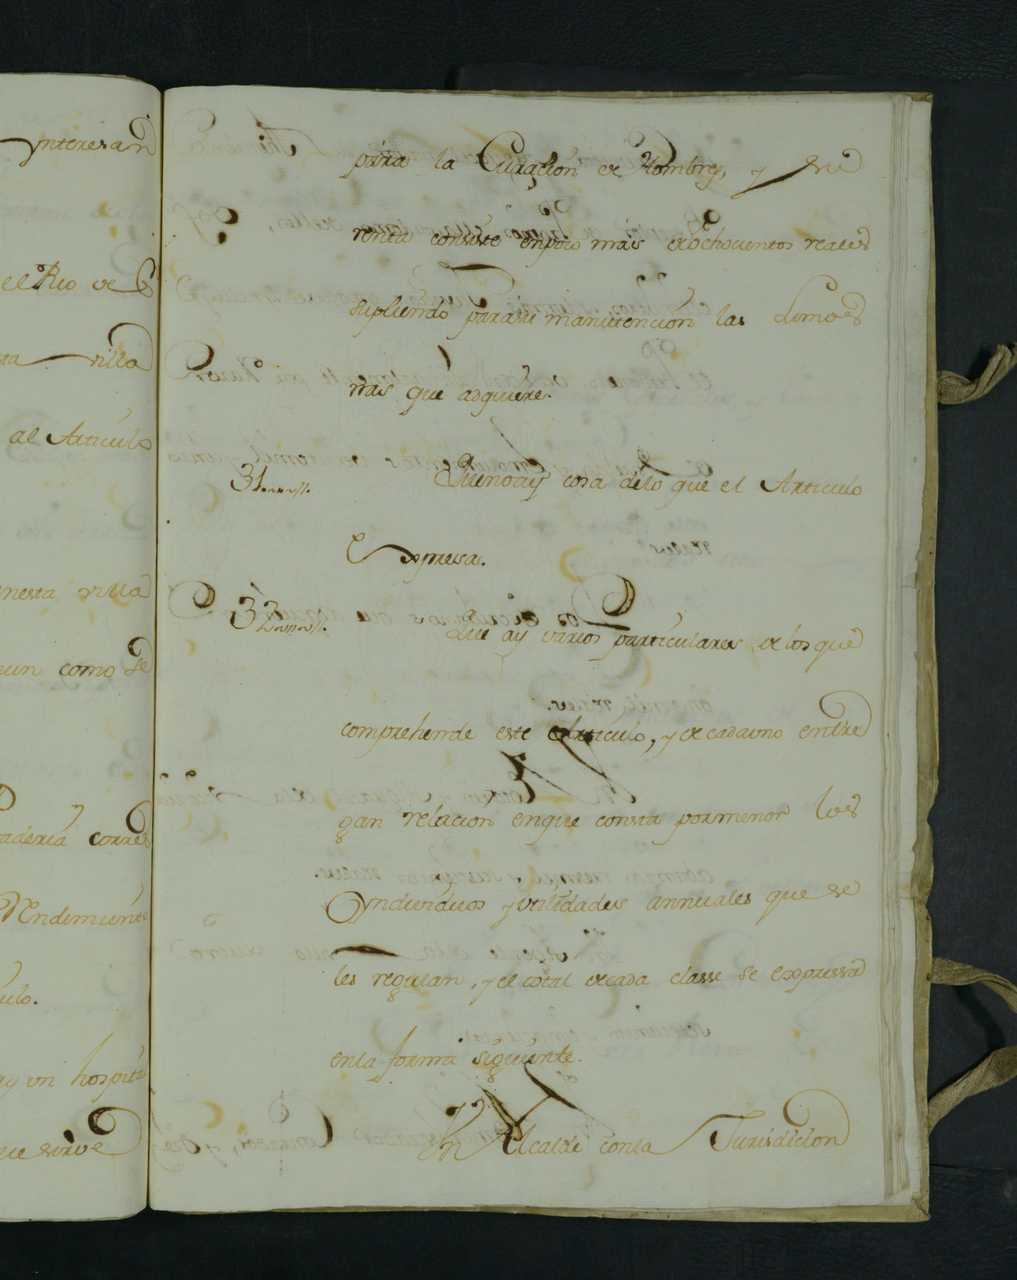 Ynteresan
el Rio de G
ta villa
al Articulo
nesta villa
un como se
aderia corres
Rendimiento
ulo.
ay un hospit
que sirve
para la Curacion de Hombres, y su
renta consiste en poco mas de ochocientos reales
supliendo para su manutencion las Limos
nas que adquiere.
31 Que no ay cosa de lo que el Articulo
Expresa.
32 Que ay varios particulares de los que
comprehende este Articulo, y de cada uno entre
gan relacion en que consta por menor los
Yndividuos y utilidades annuales que se
les regulan, y el total de cada classe se expressa
en la forma siguiente.
Un Alcalde con la Jurisdicion